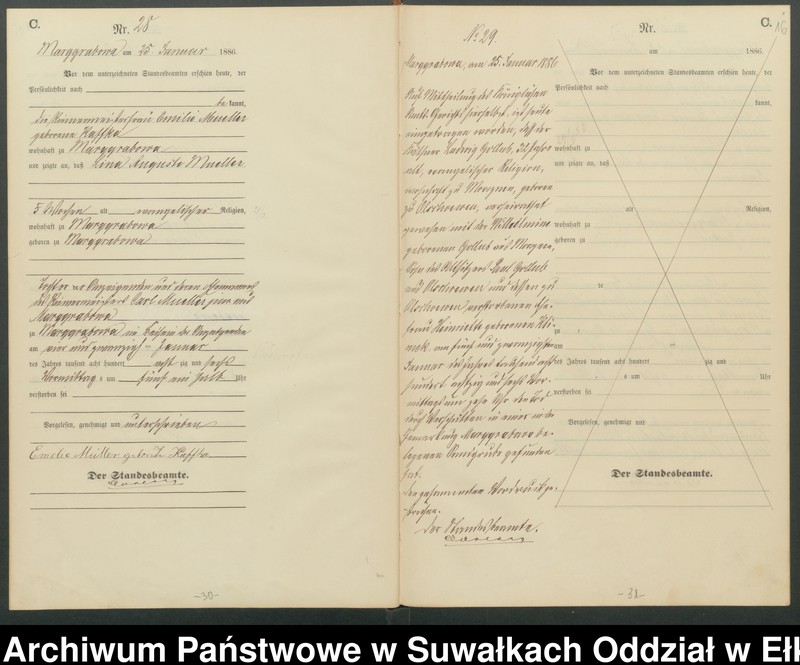 C.
Nr. 28
Marggrabowa am 25. Januar 1886.
Vor dem unterzeichneten Standesbeamten erschien heute, der
Persönlichkeit nach
bekannt,
die Emilie Mueller
geborene Kaffka
wohnhaft zu Marggrabowa
und zeigte an, daß Lina Auguste Mueller
5 Wochen alt evangelischer Religion,
wohnhaft zu Marggrabowa
geboren zu Marggrabowa
Tochter der Anzeigenden und deren Ehemannes
des Carl Mueller
Marggrabowa
zu Marggrabowa im Beisein der Anzeigenden
am vier und zwanzigsten Januar
des Jahres tausend acht hundert achtzig und sechs
Vormittags um fünf ein halb Uhr
verstorben sei
Vorgelesen, genehmigt und unterschrieben
Emilie Müller geborene Kaffka
Der Standesbeamte.
-30-
No 29.
Marggrabowa, am 25. Januar 1886
Auf Mittheilung des Königlichen
Amts Gerichts hierselbst, ist heute
eingetragen worden, daß der
Ludwig Gollub, 32 Jahre
alt, evangelischer Religion,
wohnhaft zu geboren
zu Olschewen, verheirathet
gewesen mit der Wilhelmine
geborenen Gollub aus
Sohn des Paul Gollub
aus Olschewen und dessen zu
Olschewen verstorbenen Ehe-
frau Henriette geborenen
am fünf und zwanzigsten
Januar des Jahres tausend acht
hundert achtzig und sechs Vor-
mittags um zehn Uhr den Tod
durch Verschütten in einer in der
Gemarkung Marggrabowa be-
legenen Kiesgrube gefunden
hat.
Die gesammten Vordruck ge-
strichen.
Der Standesbeamte.
C.
16
Nr.
am 1886.
Vor dem unterzeichneten Standesbeamten erschien heute, der
Persönlichkeit nach
kannt,
wohnhaft zu
und zeigte an, daß
alt Religion,
wohnhaft zu
geboren zu
de
zu
am ten
des Jahres tausend acht hundert zig und
s um Uhr
verstorben sei
Vorgelesen, genehmigt und
Der Standesbeamte.
-31-
Archiwum Państwowe w Suwałkach Oddział w Ełk